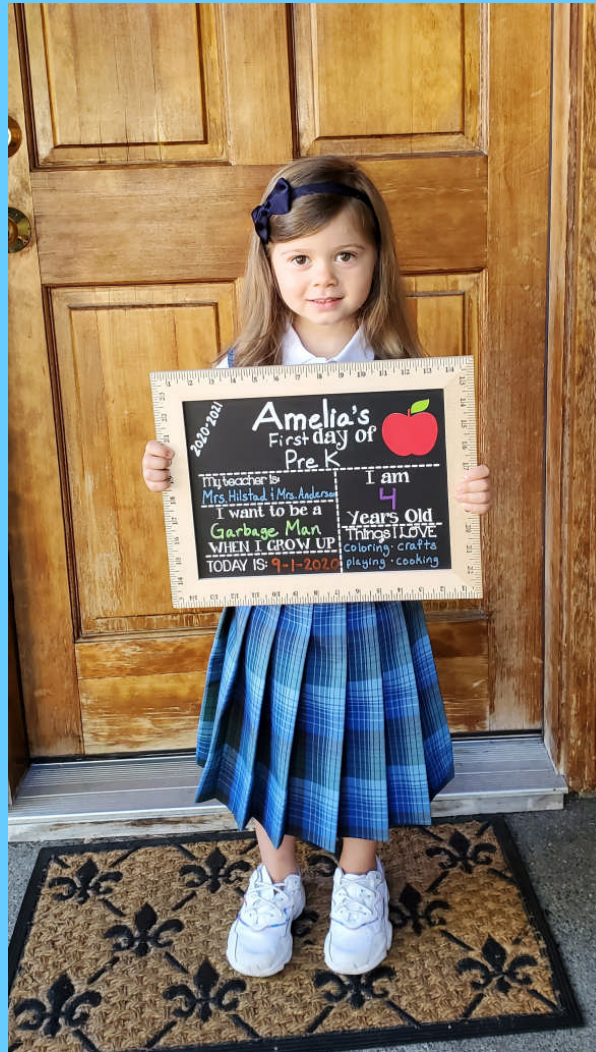 2020-2021
Amelia's
First day of
Pre K
My teacher is:
Mrs. Hilstad & Mrs. Anderson
I want to be a
Garbage Man
WHEN I GROW UP
TODAY IS: 9-1-2020
I am
4
Years Old
Things I LOVE
coloring · crafts
playing · cooking